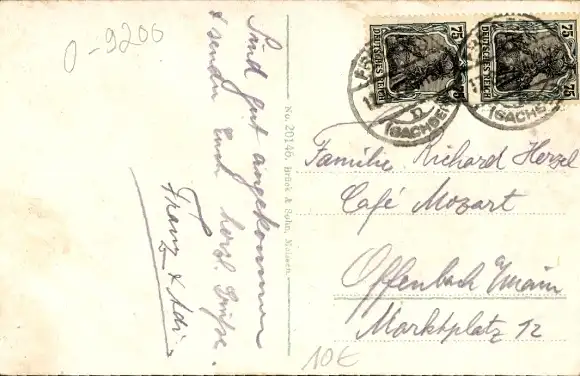 0-9200
Sind gut angekommen
& senden Euch herzl. Grüße.
Franz & Adi
No. 20146. Brück & Sohn, Meissen.
75
DEUTSCHES REICH
75
75
DEUTSCHES REICH
75
(SACHSEN)
b
(SACHSE
Familie Richard Herzel
Café Mozart
Offenbach a/main
Marktplatz 12
10€